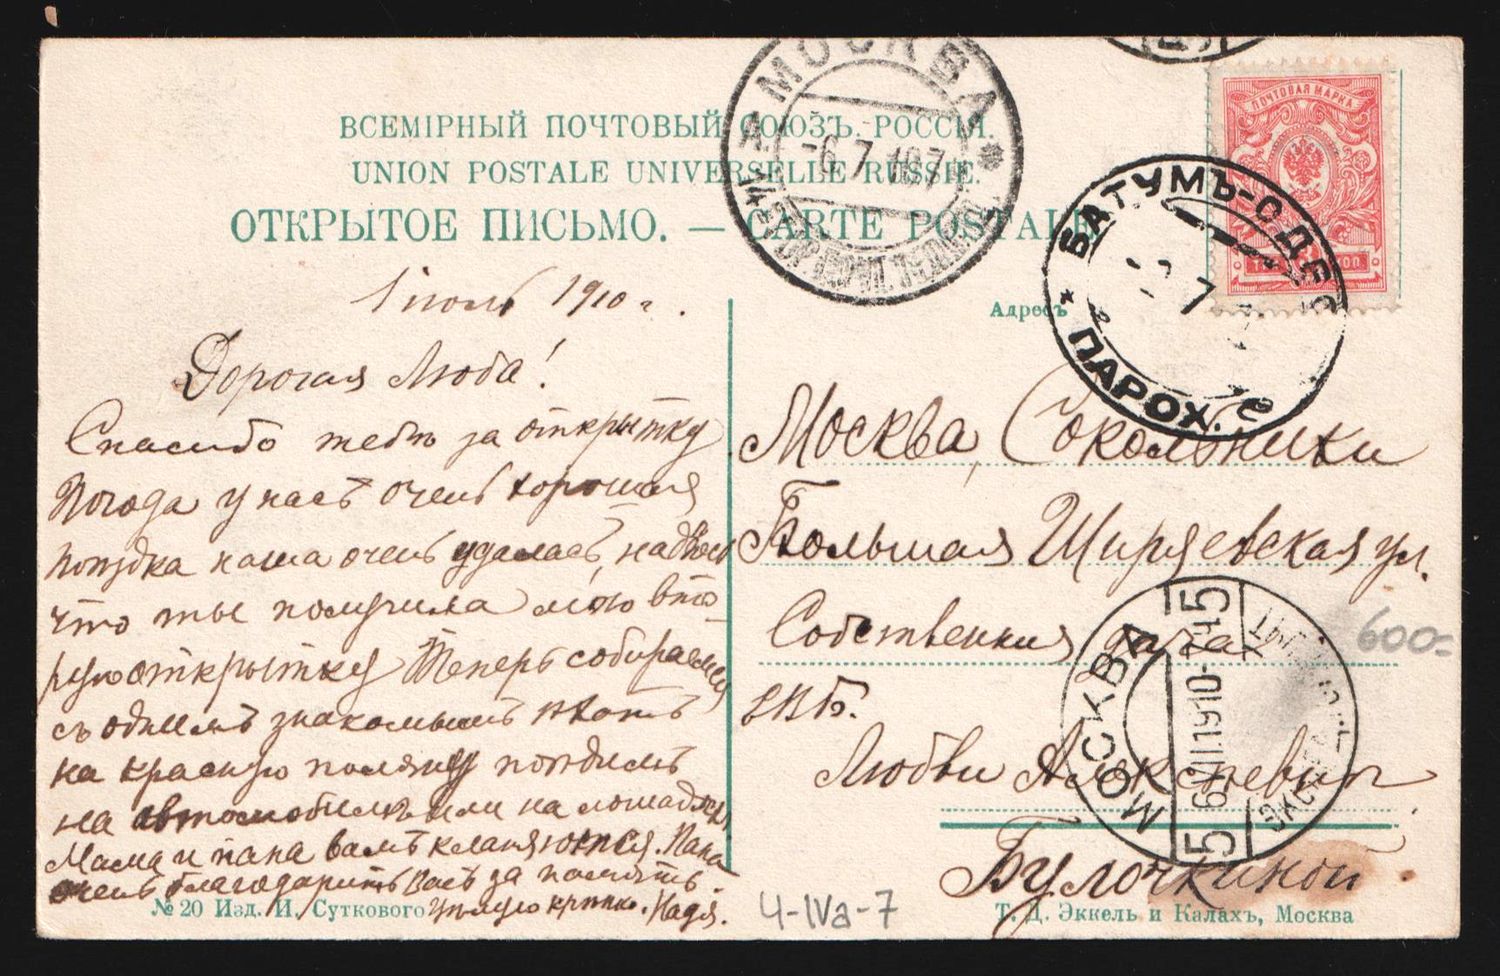 ВСЕМIРНЫЙ ПОЧТОВЫЙ СОЮЗЪ. РОССIЯ.
UNION POSTALE UNIVERSELLE RUSSIE.
ОТКРЫТОЕ ПИСЬМО. — CARTE POSTALE
МОСКВА
-6 7 10 7
ПОЧТОВАЯ МАРКА
БАТУМЪ-ОДЕС
2 7
ПАРОХ.
1 июль 1910 г.
Дорогая Люба!
Спасибо тебѣ за открытку
Погода у насъ очень хорошая
поѣздка наша очень удалась, надѣюсь
что ты получила мою вто
рую открытку Теперь собираемся
съ однимъ знакомымъ ѣхать
на красную поляну поѣдимъ
на автомобилѣ или на лошадяхъ.
Мама и папа вамъ кланяются. Папа
очень благодаритъ васъ за память.
Цѣлую крѣпко. Надя.
Адресъ
Москва, Сокольники
Большая Ширяевская ул.
Собственная дача
Любви Алексѣевнѣ
Булочкиной
МОСКВА
5 6 VII 1910 - 745
600-
№ 20 Изд. И. Суткового
4-IVa-7
Т. Д. Эккель и Калахъ, Москва